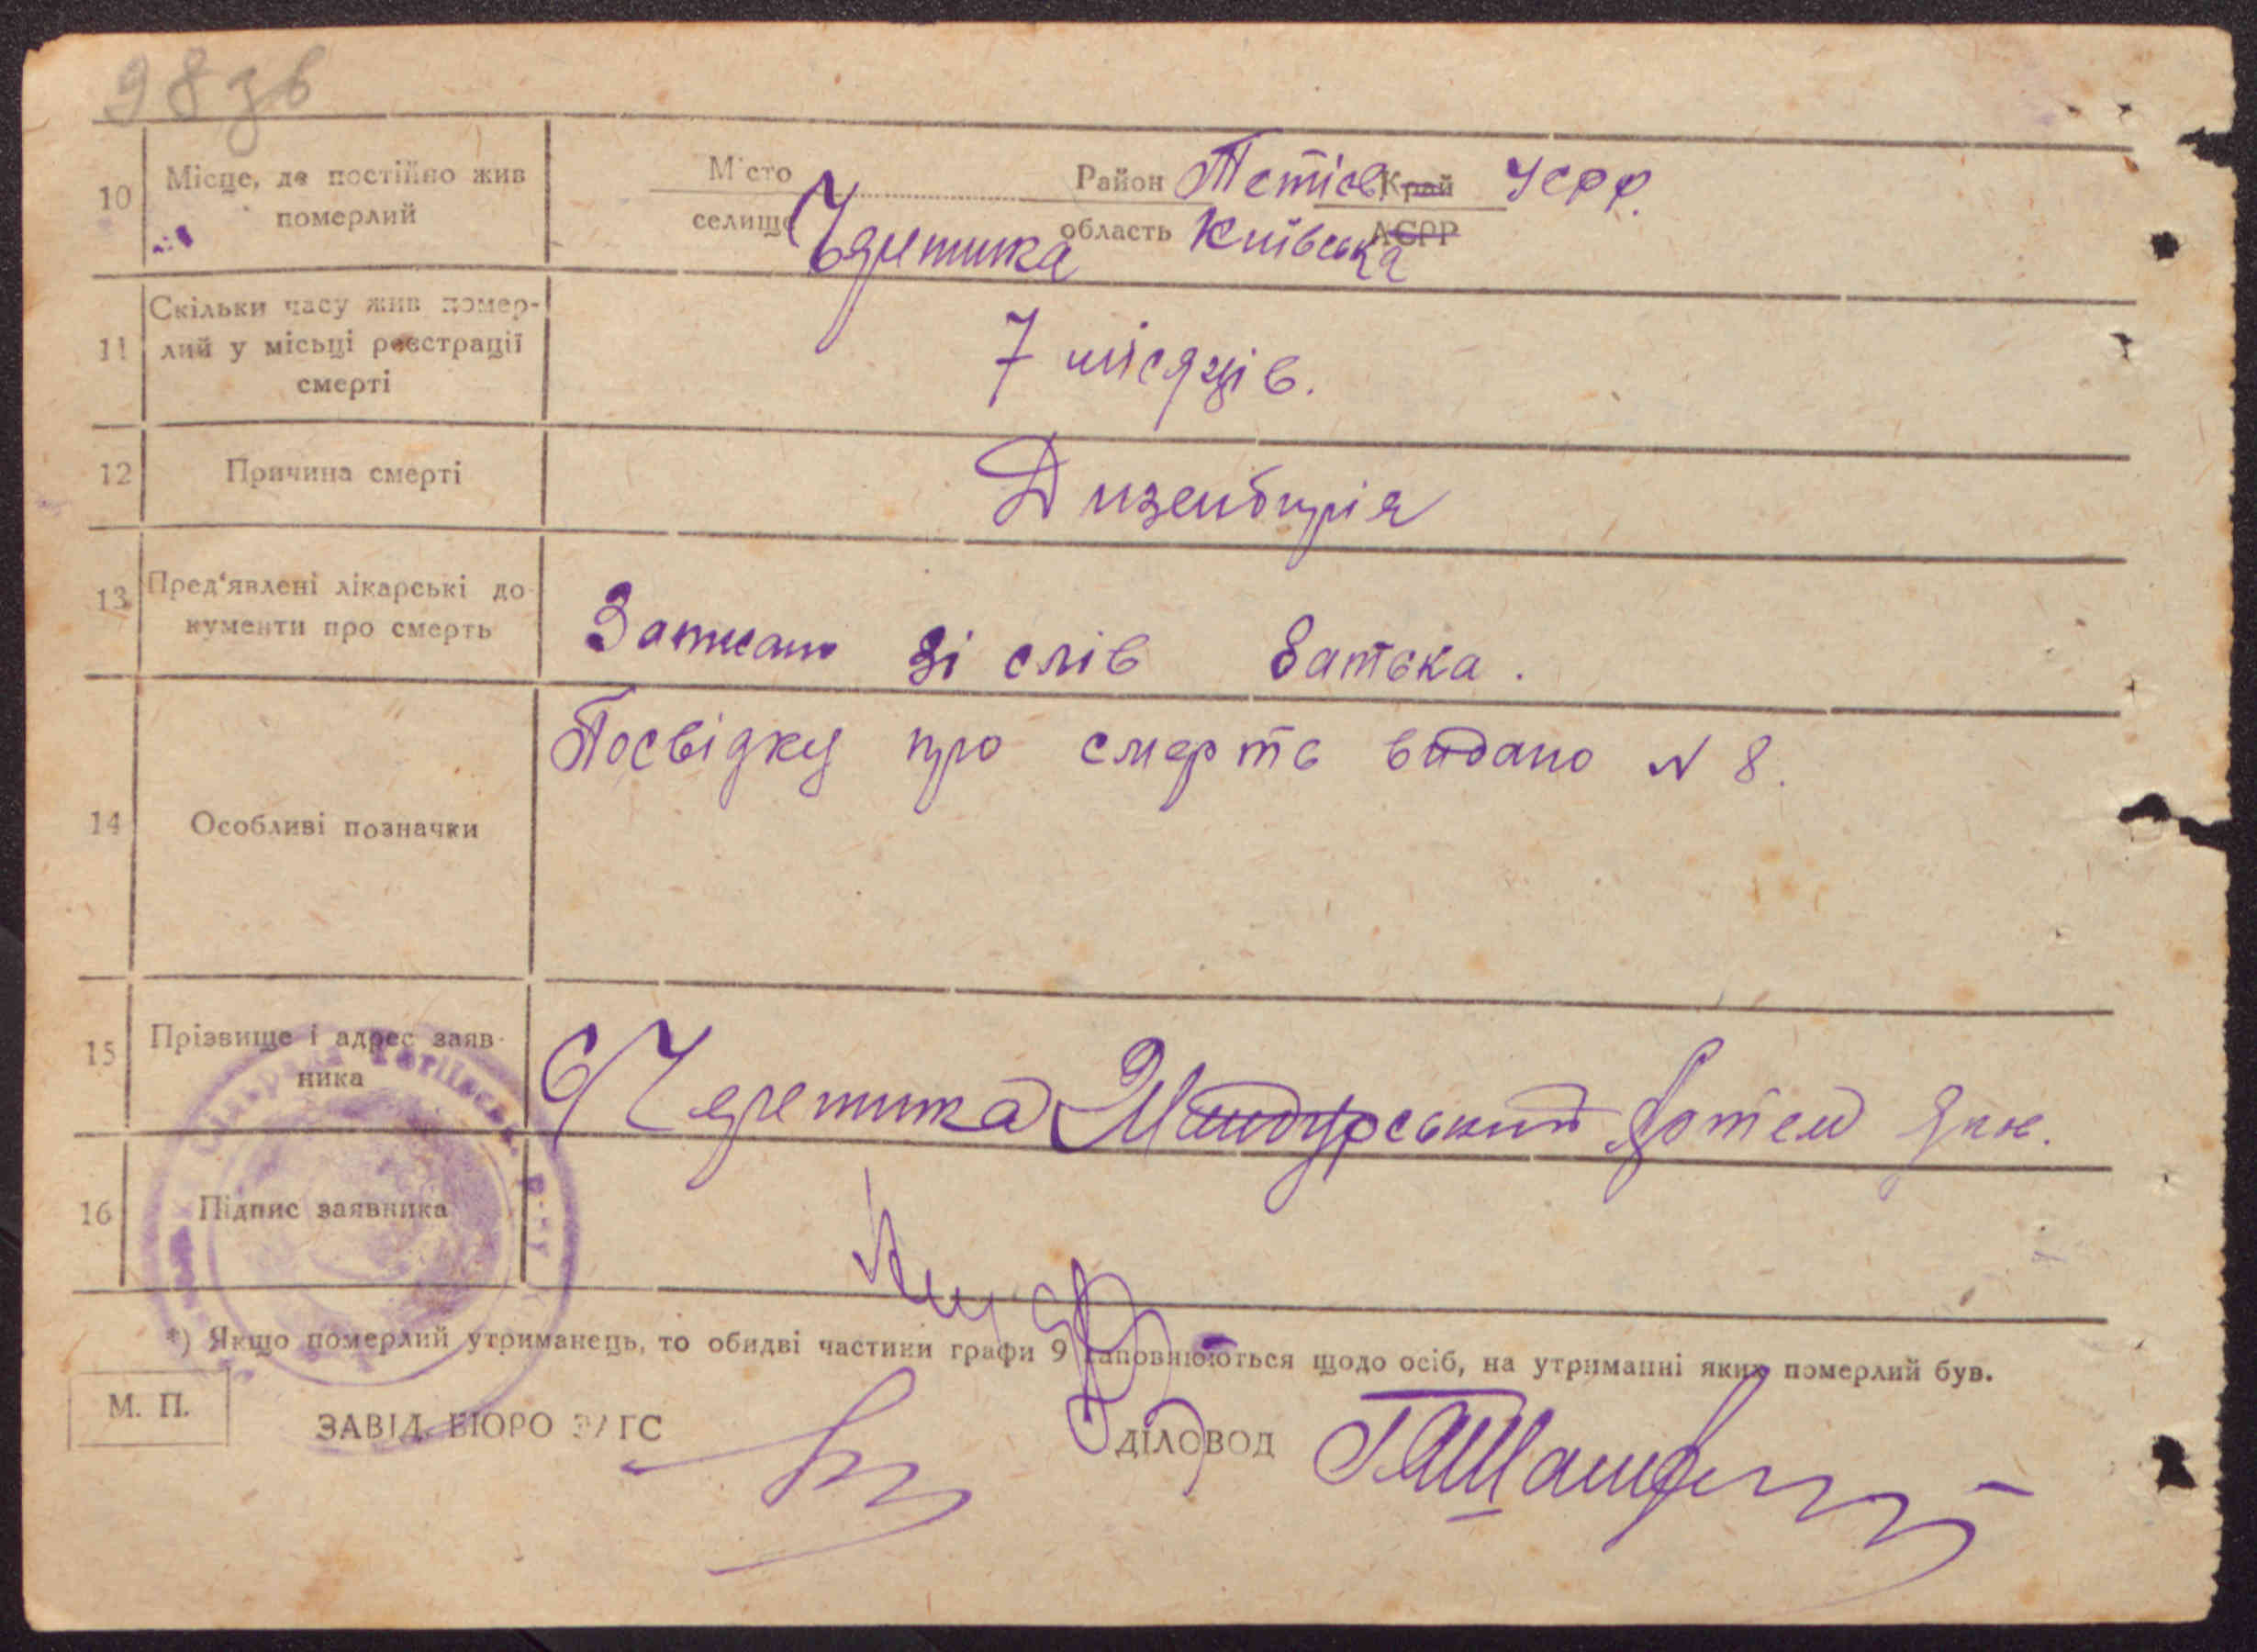 98 зв
10 Місце, де постійно жив померлий
М'сто
селище Черепинка
Район Тетіїв Край УСРР.
область Київська АСРР
11 Скільки часу жив помер-
лий у місьці реєстрації
смерті
7 місяців.
12 Причина смерті
Дизентирія
13 Пред'явлені лікарські до-
кументи про смерть
Записано зі слів батька.
14 Особливі позначки
Посвідку про смерть видано N 8.
15 Прізвище і адрес заяв-
ника
с Черепинка
16 Підпис заявника
*) Якщо померлий утриманець, то обидві частини графи 9 заповнюються щодо осіб, на утриманні яких померлий був.
М. П.
ЗАВІД. БЮРО ЗАГС
ДІЛОВОД